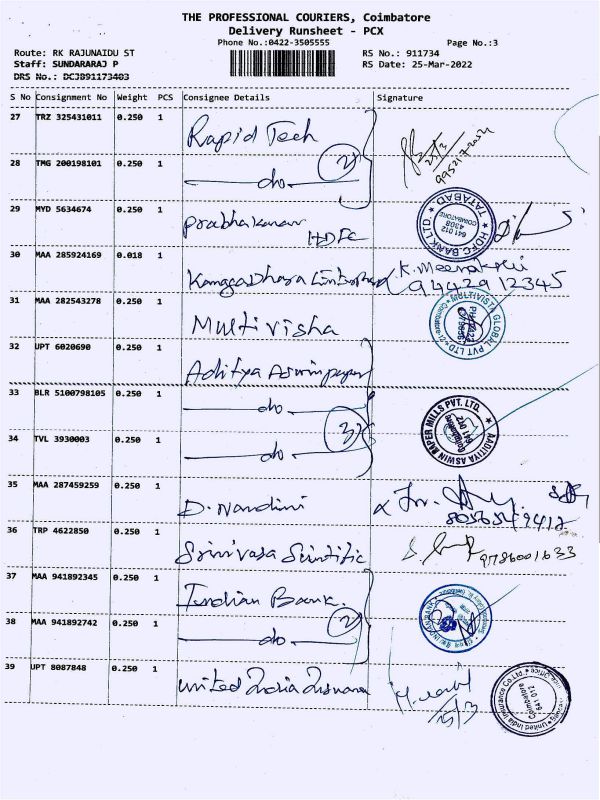 THE PROFESSIONAL COURIERS, Coimbatore
Delivery Runsheet - PCX
Phone No.:0422-3505555 Page No.:3
Route: RK RAJUNAIDU ST RS No.: 911734
Staff: SUNDARARAJ P RS Date: 25-Mar-2022
DRS No.: DCJB91173403
S No Consignment No Weight PCS Consignee Details Signature
27 TRZ 325431011 0.250 1 Rapid Tech
25/3
28 TMG 200198101 0.250 1 do 2
29 MYD 5634674 0.250 1 Prabhakaran
HDFC
HDFC BANK LTD. TATABAD
COIMBATORE 641 012
4308
30 MAA 285924169 0.018 1 Kangadhara Enterprises K. Meenakshi
94429 12345
31 MAA 282543278 0.250 1 Multi visha
MULTIVISTA GLOBAL PVT LTD Coimbatore-12
32 UPT 6020690 0.250 1 Aditya Aswin paper
33 BLR 5100798105 0.250 1 do
AADITYA ASWIN PAPER MILLS PVT. LTD.
Coimbatore
641 012
34 TVL 3930003 0.250 1 do 3
35 MAA 287459259 0.250 1 D. Nandini
36 TRP 4622850 0.250 1 Srinivasa Scintific 9786001633
37 MAA 941892345 1 Indian Bank.
INDIAN BANK
38 MAA 941892742 0.250 1 do 2
39 UPT 8087848 0.250 1 United India Insurance
United India Insurance Co. Ltd.
Coimbatore
641 012